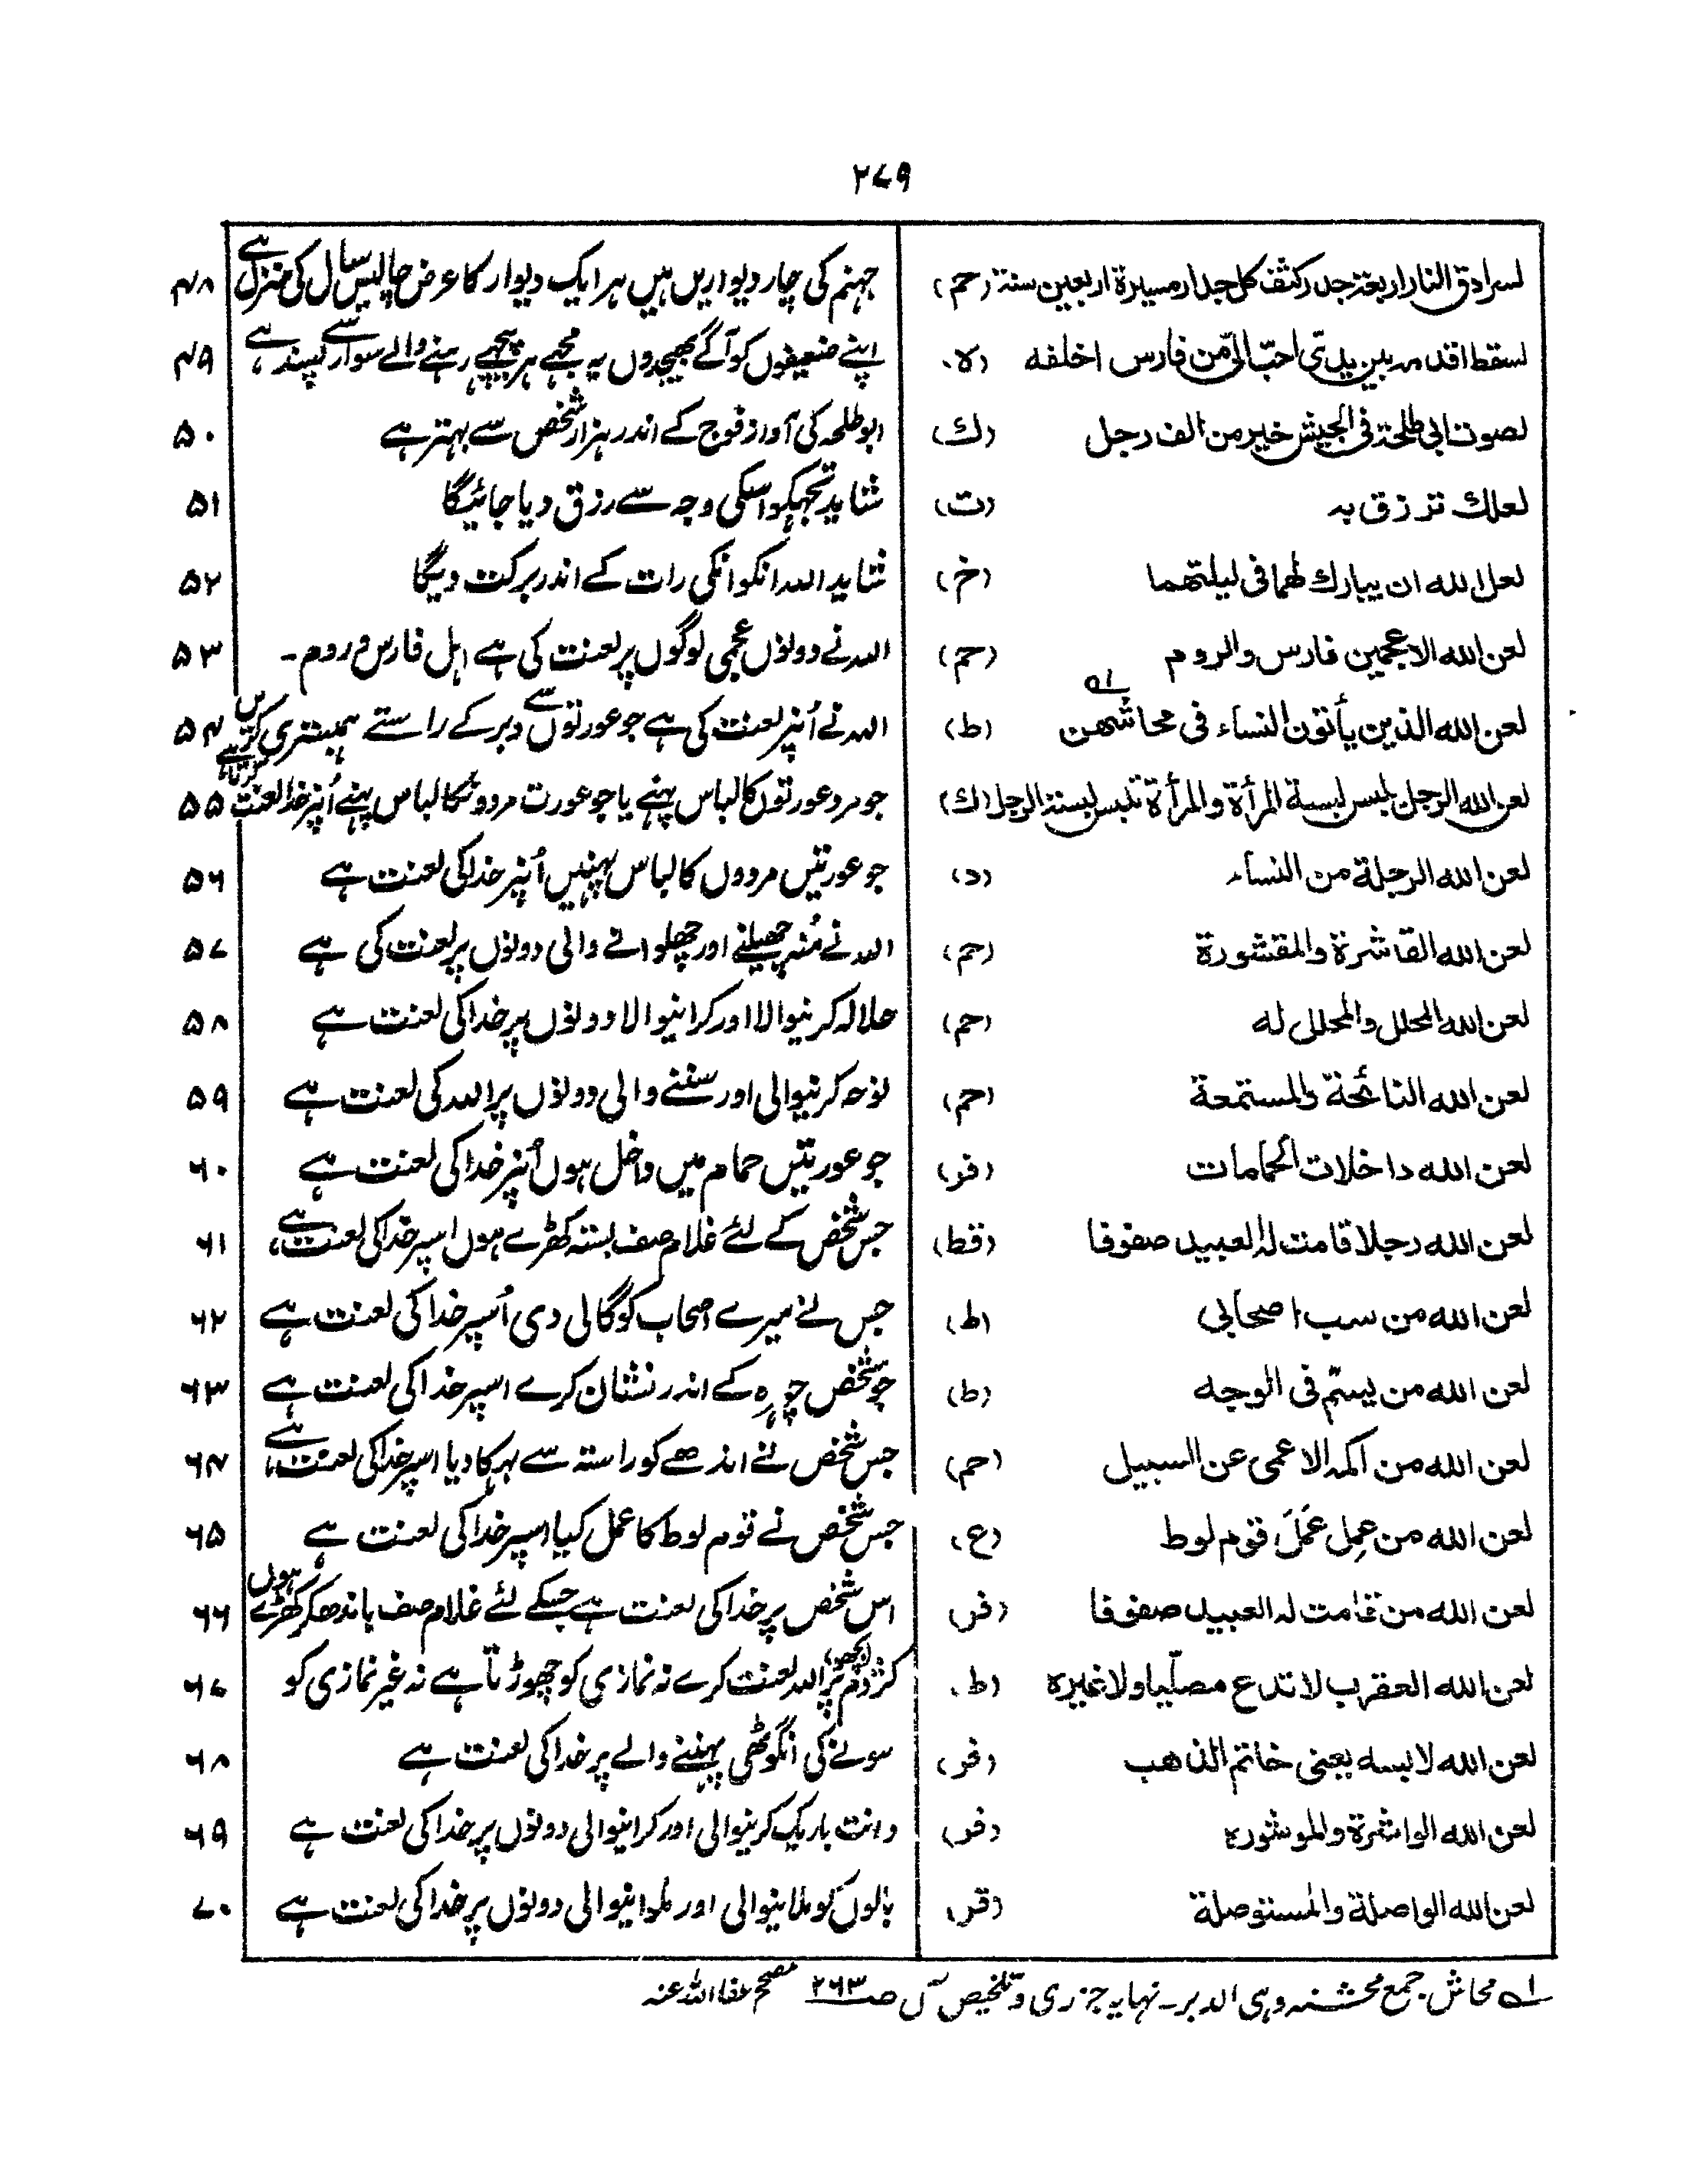 ۲۷۹
لسرادق النار اربعة جدر کثف کل جدار مسیرة اربعین سنة (حم) جہنم کی چار دیواریں ہیں ہر ایک دیوار کا عرض چالیس سال کی منزل ہے ۴۸
لسقط اقدمه بین یدیّ احبّ الیّ من فارس اخلفه (ہ) اپنے ضعیفوں کو آگے بھیجدوں یہ مجھے ہر پیچھے رہنے والے سوار سے پسند ہے ۴۹
لصوت ابی طلحة فی الجیش خیر من الف رجل (ك) ابوطلحہ کی آواز فوج کے اندر ہزار شخص سے بہتر ہے ۵۰
لعلك ترزق به (ت) شاید تجھکو اسکی وجہ سے رزق دیا جائیگا ۵۱
لعل الله ان یبارك لهما فی لیلتهما (خ) شاید اللہ انکو انکی رات کے اندر برکت دیگا ۵۲
لعن الله الاعجمین فارس والروم (حم) اللہ نے دونوں عجمی لوگوں پر لعنت کی ہے اہل فارس و روم۔ ۵۳
لعن الله الذین یأتون النساء فی محاشهن ۱ (ط) اللہ نے اُنپر لعنت کی ہے جو عورتوں سے دبر کے راستے ہمبستری کریں ۵۴
لعن الله الرجل یلبس لبسة المرأة والمرأة تلبس لبسة الرجل (ك) جو مرد عورتوں کا لباس پہنے یا جو عورت مردونکا لباس پہنے اُنپر خدا لعنت کرتا ہے ۵۵
لعن الله الرجلة من النساء (د) جو عورتیں مردوں کا لباس پہنیں اُنپر خدا کی لعنت ہے ۵۶
لعن الله القاشرة والمقشورة (حم) اللہ نے مُنہ چھیلنے اور چھلوانے والی دونوں پر لعنت کی ہے ۵۷
لعن الله المحلل والمحلل له (حم) حلالہ کرنیوالا اور کرانیوالا دونوں پر خدا کی لعنت ہے ۵۸
لعن الله النائحة والمستمعة (حم) نوحہ کرنیوالی اور سننے والی دونوں پر اللہ کی لعنت ہے ۵۹
لعن الله داخلات الحمامات (فر) جو عورتیں حمام میں داخل ہوں اُنپر خدا کی لعنت ہے ۶۰
لعن الله رجلا قامت له العبید صفوفا (قط) جس شخص کے لئے غلام صف بستہ کھڑے ہوں اسپر خدا کی لعنت ہے، ۶۱
لعن الله من سب اصحابی (ط) جس نے میرے اصحاب کو گالی دی اُسپر خدا کی لعنت ہے ۶۲
لعن الله من یسّم فی الوجه (ط) جو شخص چہرہ کے اندر نشان کرے اسپر خدا کی لعنت ہے ۶۳
لعن الله من اکمه الاعمی عن السبیل (حم) جس شخص نے اندھے کو راستہ سے بہکا دیا اسپر خدا کی لعنت ہے، ۶۴
لعن الله من عمِل عَمَلَ قوم لوط (ع) جس شخص نے قوم لوط کا عمل کیا اسپر خدا کی لعنت ہے ۶۵
لعن الله من قامت له العبید صفوفا (فر) اس شخص پر خدا کی لعنت ہے جسکے لئے غلام صف باندھکر کھڑے ہوں ۶۶
لعن الله العقرب لا تدع مصلّیا ولا غیره (ط) کژدم (بچھو) پر اللہ لعنت کرے نہ نمازی کو چھوڑتا ہے نہ غیر نمازی کو ۶۷
لعن الله لابسه یعنی خاتم الذهب (فر) سونے کی انگوٹھی پہننے والے پر خدا کی لعنت ہے ۶۸
لعن الله الواشرة والموشوره (فر) دانت باریک کرنیوالی اور کرانیوالی دونوں پر خدا کی لعنت ہے ۶۹
لعن الله الواصلة والمستوصلة (قر) بالوں کو ملانیوالی اور ملوانیوالی دونوں پر خدا کی لعنت ہے ۷۰
۱ محاش جمع محشہ وہی الدبر۔ نہایہ جزری و تلخیص آں ص ۲۶۳ مصحح عفا اللہ عنہ